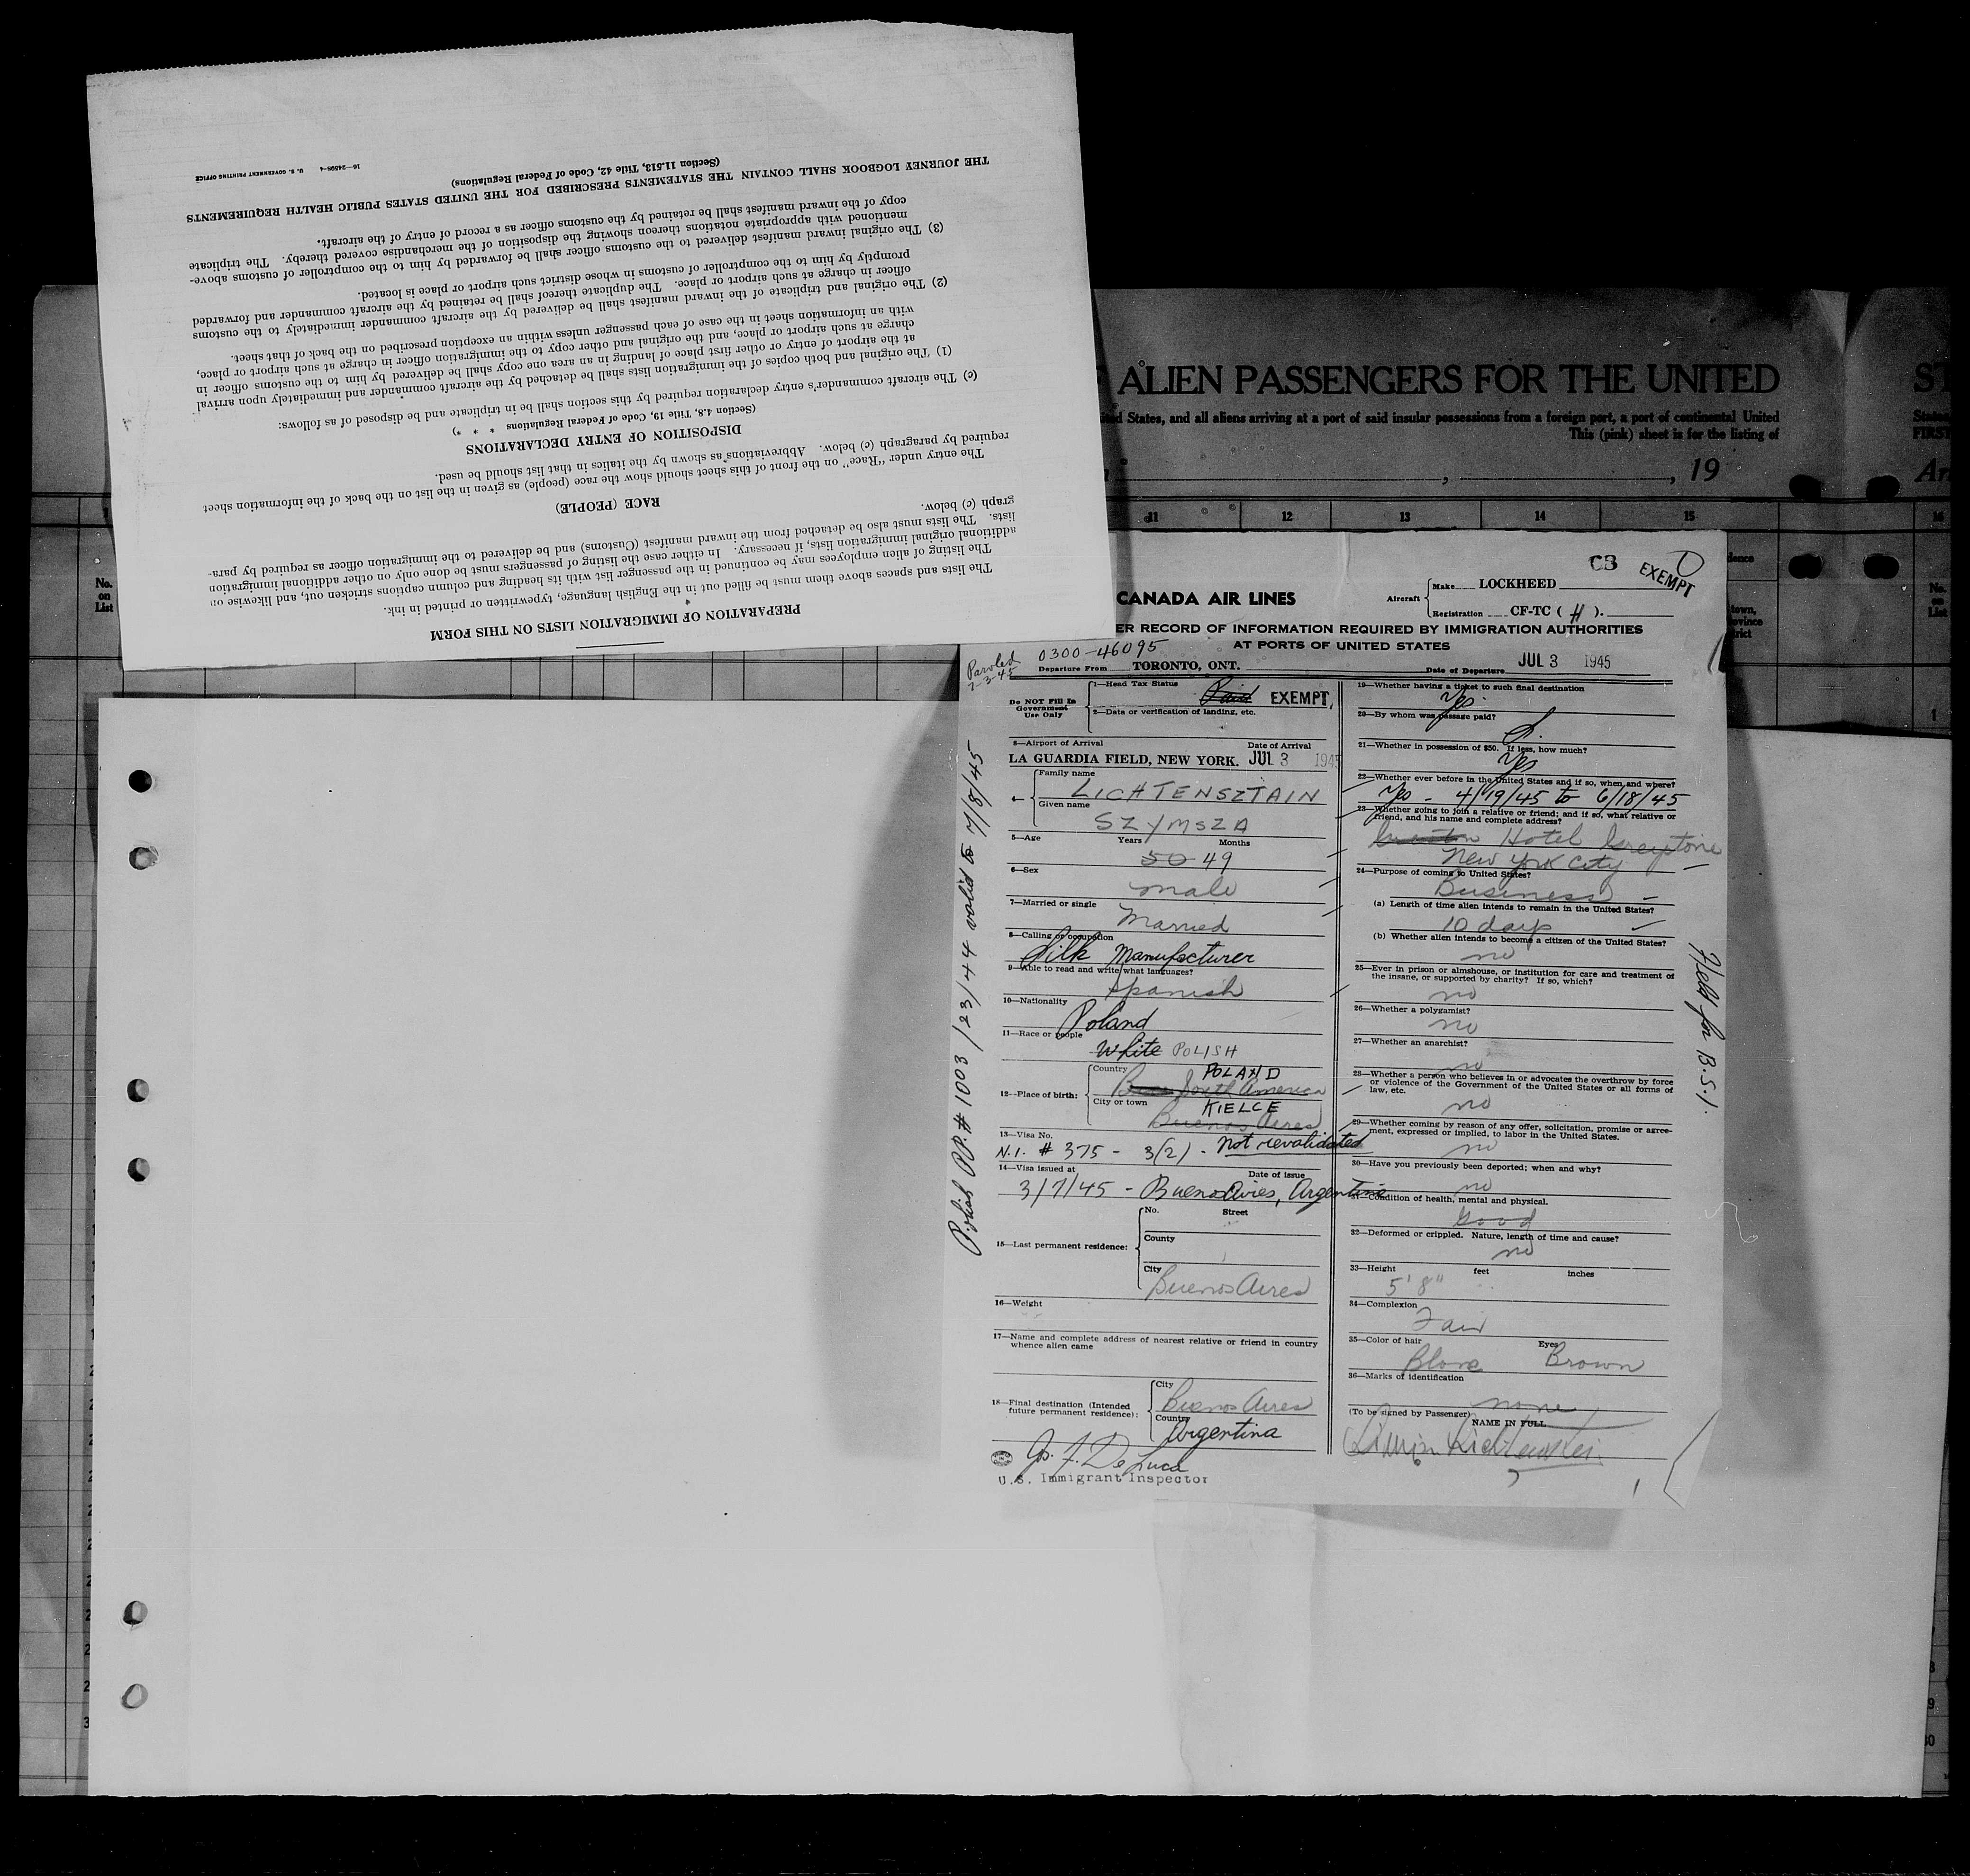 PREPARATION OF IMMIGRATION LISTS ON THIS FORM
The lists and spaces above them must be filled out in the English language, typewritten or printed in ink.
The listing of alien employees may be continued in the passenger list with its heading and column captions stricken out, and likewise on
additional original immigration lists, if necessary. In either case the listing of passengers must be done only on other additional immigration
lists. The lists must also be detached from the inward manifest (Customs) and be delivered to the immigration officer as required by para-
graph (c) below.
RACE (PEOPLE)
The entry under "Race" on the front of this sheet should show the race (people) as given in the list on the back of the information sheet
required by paragraph (c) below. Abbreviations as shown by the italics in that list should be used.
DISPOSITION OF ENTRY DECLARATIONS
(Section 4.8, Title 19, Code of Federal Regulations * * *)
(c) The aircraft commander's entry declaration required by this section shall be in triplicate and be disposed of as follows:
(1) The original and both copies of the immigration lists shall be detached by the aircraft commander and immediately upon arrival
at the airport of entry or other first place of landing in an area one copy shall be delivered by him to the customs officer in
charge at such airport or place, and the original and other copy to the immigration officer in charge at such airport or place,
with an information sheet in the case of each passenger unless within an exception prescribed on the back of that sheet.
(2) The original and triplicate of the inward manifest shall be delivered by the aircraft commander immediately to the customs
officer in charge at such airport or place. The duplicate thereof shall be retained by the aircraft commander and forwarded
promptly by him to the comptroller of customs in whose district such airport or place is located.
(3) The original inward manifest delivered to the customs officer shall be forwarded by him to the comptroller of customs above-
mentioned with appropriate notations thereon showing the disposition of the merchandise covered thereby. The triplicate
copy of the inward manifest shall be retained by the customs officer as a record of entry of the aircraft.
THE JOURNEY LOGBOOK SHALL CONTAIN THE STATEMENTS PRESCRIBED FOR THE UNITED STATES PUBLIC HEALTH REQUIREMENTS
(Section 11.513, Title 42, Code of Federal Regulations)
16—24598-4 U. S. GOVERNMENT PRINTING OFFICE
ALIEN PASSENGERS FOR THE UNITED
States, and all aliens arriving at a port of said insular possessions from a foreign port, a port of continental United
This (pink) sheet is for the listing of
, 19
11 12 13 14 15 16
No.
on
List
CB EXEMPT
CANADA AIR LINES
Aircraft
Make LOCKHEED
Registration CF-TC ( H ).
ER RECORD OF INFORMATION REQUIRED BY IMMIGRATION AUTHORITIES
AT PORTS OF UNITED STATES
Paroled
7-3-45
0300-46095
Departure From TORONTO, ONT.
Date of Departure JUL 3 1945
Do NOT Fill In
Government
Use Only
1—Head Tax Status Paid EXEMPT
2—Data or verification of landing, etc.
3—Airport of Arrival Date of Arrival
LA GUARDIA FIELD, NEW YORK. JUL 3 1945
4—
Family name
LICHTENSZTAIN
Given name
SZYMSZA
5—Age Years Months
50 49
6—Sex
male
7—Married or single
Married
8—Calling or occupation
Silk Manufacturer
9—Able to read and write what languages?
Spanish
10—Nationality
Poland
11—Race or people
White POLISH
12—Place of birth:
Country POLAND
South America
City or town KIELCE
Buenos Aires
13—Visa No.
N.I. # 375 - 3(2) - Not revalidated
14—Visa issued at Date of issue
3/7/45 - Buenos Aires, Argentine
15—Last permanent residence:
No. Street
County
City
Buenos Aires
16—Weight
17—Name and complete address of nearest relative or friend in country
whence alien came
18—Final destination (Intended
future permanent residence):
City
Buenos Aires
Country
Argentina
Jos. F. De Luca
U.S. Immigrant Inspector
Polish PP. # 1003 /23/44 valid to 7/8/45
19—Whether having a ticket to such final destination
Yes
20—By whom was passage paid?
21—Whether in possession of $50. If less, how much?
Yes
22—Whether ever before in the United States and if so, when and where?
Yes - 4/19/45 to 6/18/45
23—Whether going to join a relative or friend; and if so, what relative or
friend, and his name and complete address?
Hotel Greystone
New York City
24—Purpose of coming to United States?
Business
(a) Length of time alien intends to remain in the United States?
10 days
(b) Whether alien intends to become a citizen of the United States?
no
25—Ever in prison or almshouse, or institution for care and treatment of
the insane, or supported by charity? If so, which?
no
26—Whether a polygamist?
no
27—Whether an anarchist?
no
28—Whether a person who believes in or advocates the overthrow by force
or violence of the Government of the United States or all forms of
law, etc.
no
29—Whether coming by reason of any offer, solicitation, promise or agree-
ment, expressed or implied, to labor in the United States.
no
30—Have you previously been deported; when and why?
no
31—Condition of health, mental and physical.
Good
32—Deformed or crippled. Nature, length of time and cause?
no
33—Height feet inches
5' 8"
34—Complexion
Fair
35—Color of hair Eyes
Brown
36—Marks of identification
none
(To be signed by Passenger)
NAME IN FULL
Held for B.S.I.